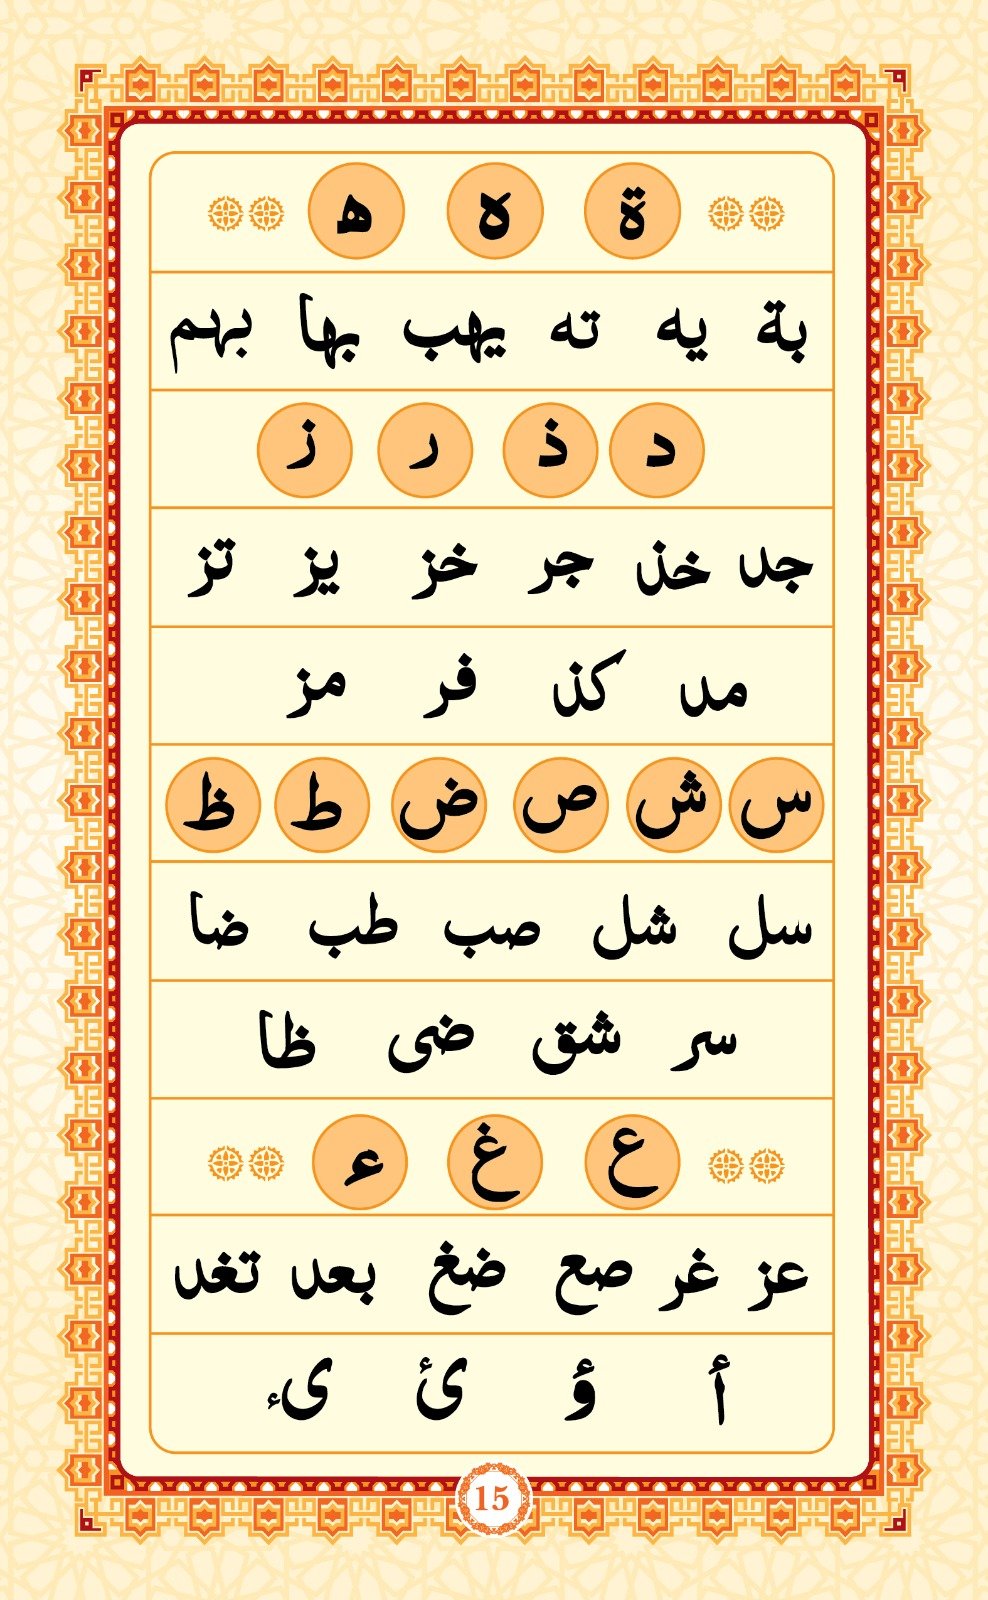 ة ه ھ
بة يه ته يهب بها بهم
د ذ ر ز
جد خذ جر خز يز تز
مد كذ فر مز
س ش ص ض ط ظ
سل شل صب طب ضا
سر شق ضى ظا
ع غ ء
عز غر صع ضغ بعد تغد
أ ؤ ئ ىء
15